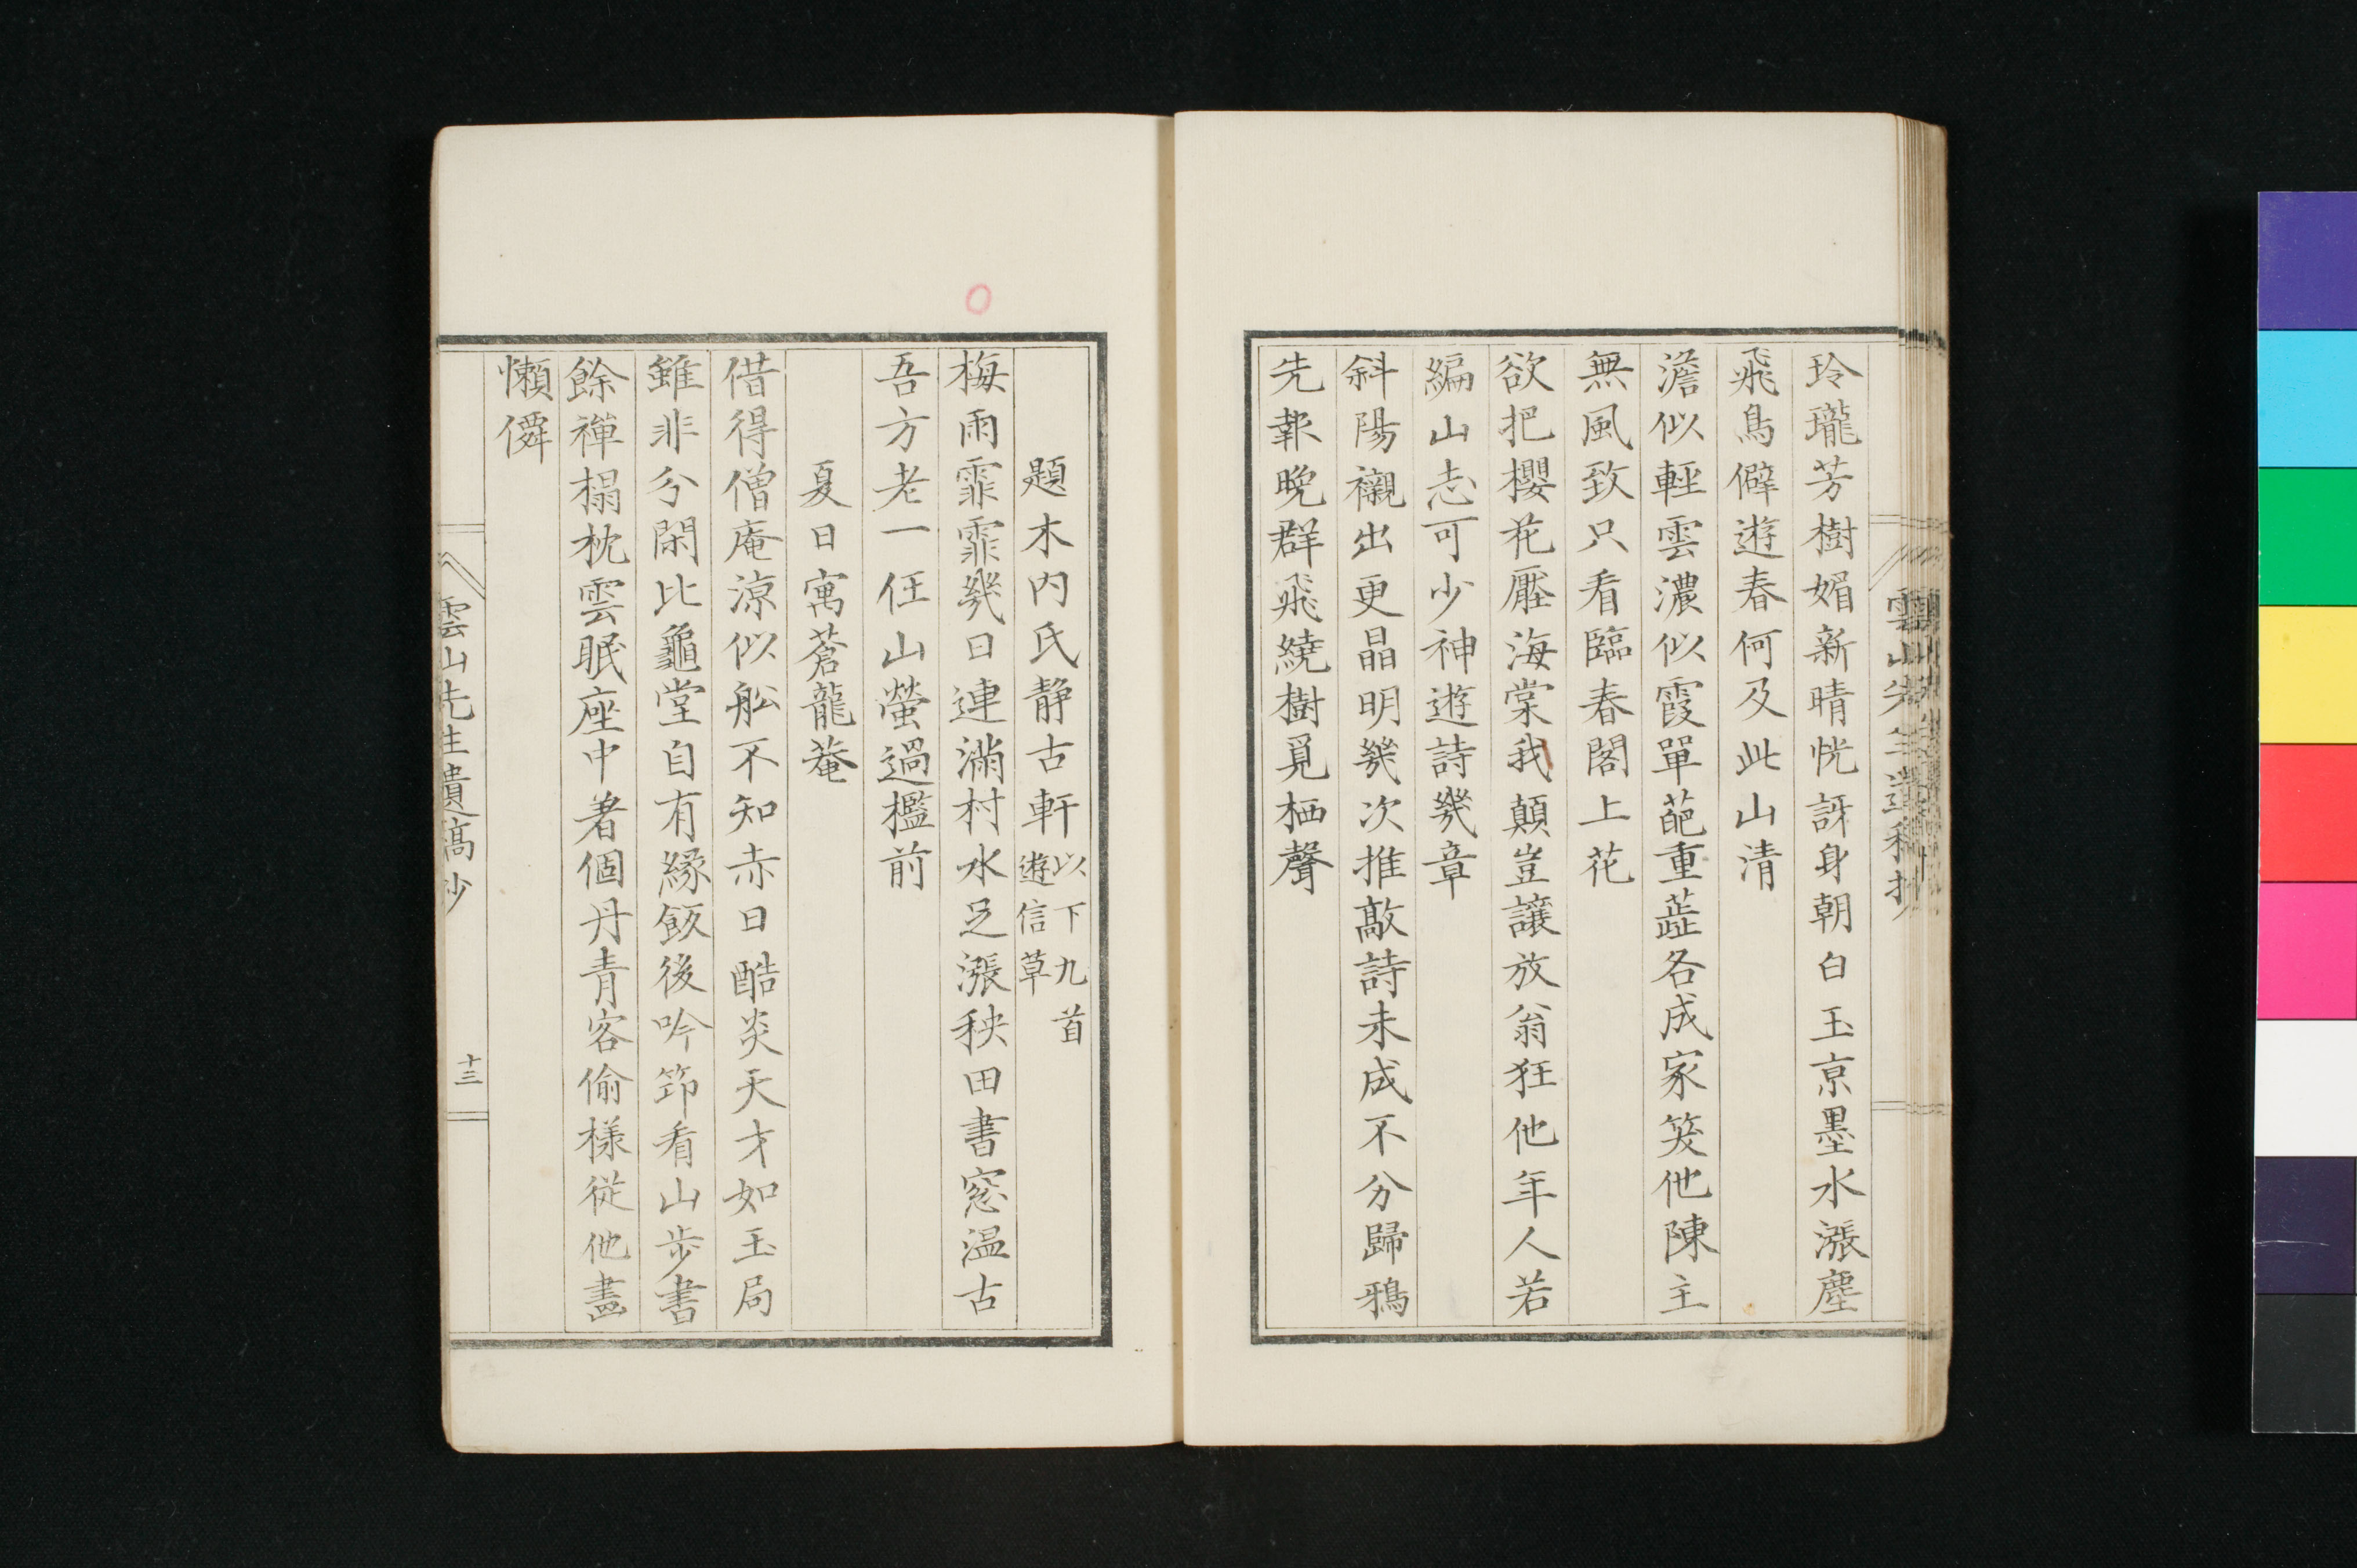 玲瓏芳樹媚新晴恍訝身朝白玉京墨水漲塵
飛鳥僻遊春何及此山清
澹似輕雲濃似霞單葩重蕋各成家笑他陳主
無風致只看臨春閣上花
欲把櫻花壓海棠我顛豈讓放翁狂他年人若
編山志可少神遊詩幾章
斜陽襯出更晶明幾次推敲詩未成不分歸鴉
先報晚群飛繞樹覓栖聲
題木内氏静古軒以下九首遊信草
梅雨霏霏幾日連滿村水足漲秧田書窓温古
吾方老一任山螢過檻前
夏日寓蒼龍菴
借得僧庵涼似舩不知赤日酷炎天才如玉局
雖非分閑比龜堂自有縁飯後吟筇看山步書
餘禪榻枕雲眠座中著個丹青客偷様從他畫
懶僊
雲山先生遺稿抄
十三